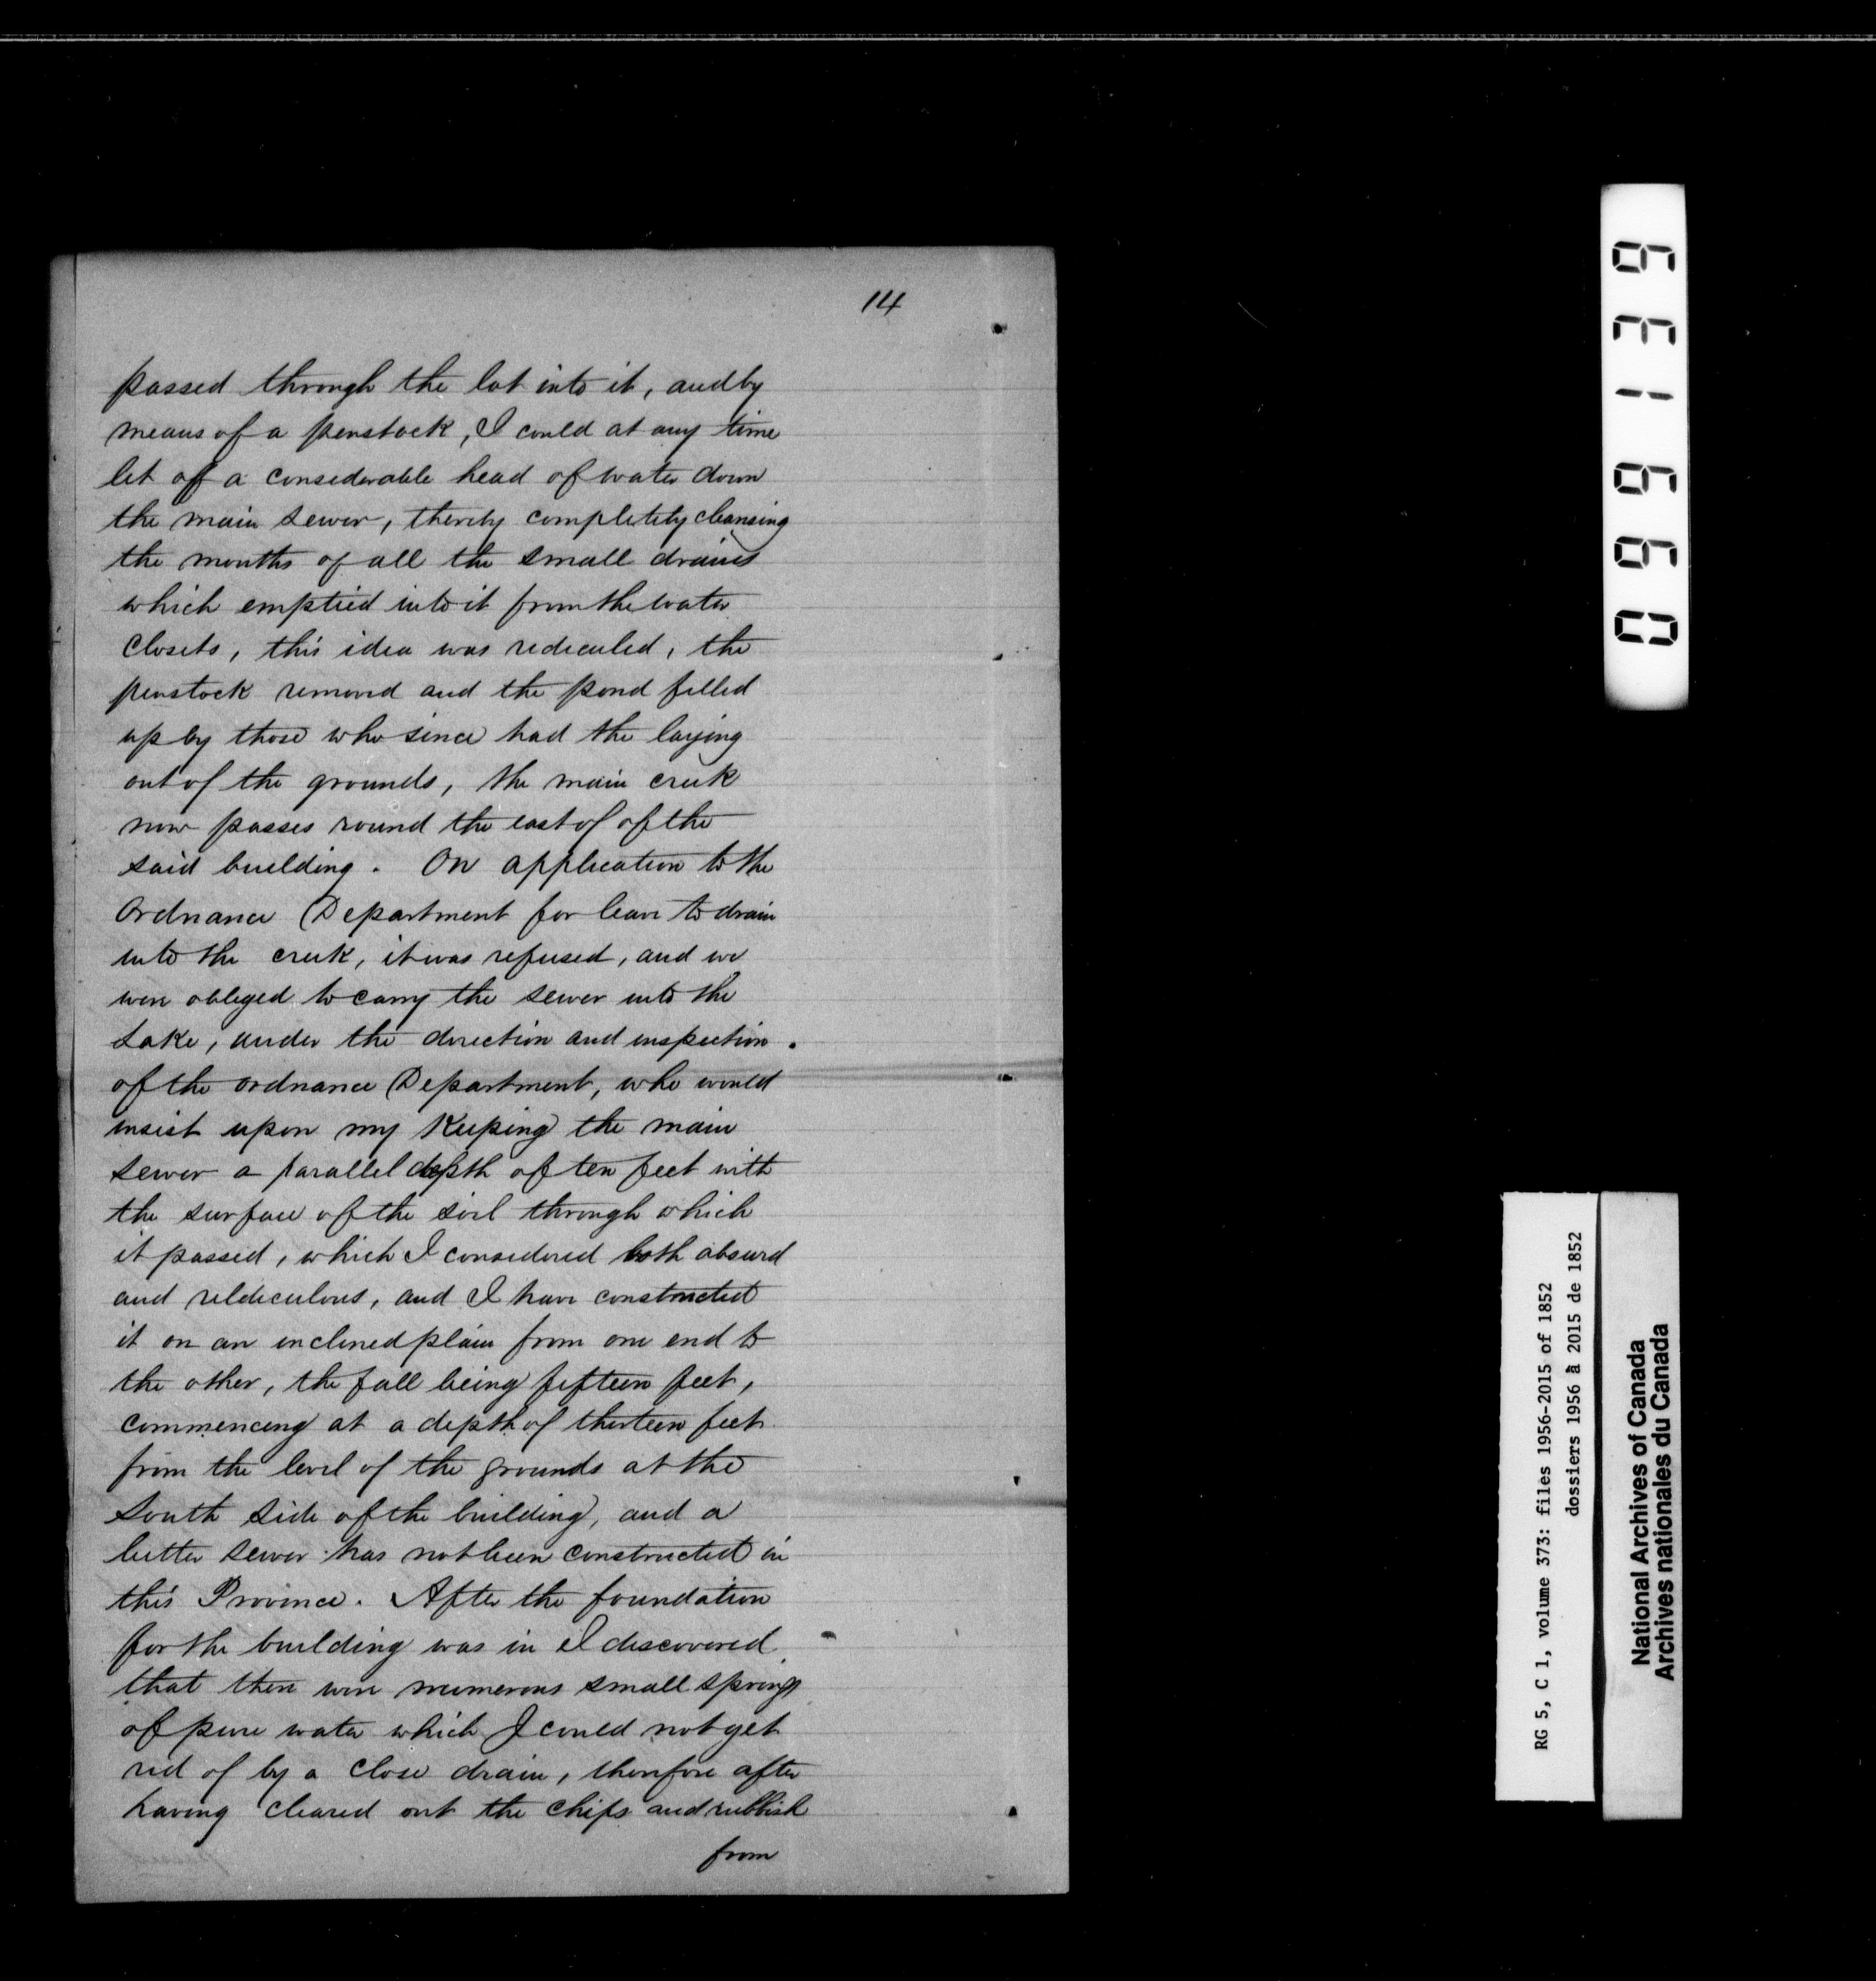 14
passed through the lot into it, and by
means of a penstock, I could at any time
let off a considerable head of water down
the main sewer, thereby completely cleansing
the mouths of all the small drains
which emptied into it from the water
closets, this idea was rediculed, the
penstock removed and the pond filled
up by those who since had the laying
out of the grounds, the main creek
now passes round the east of of the
said building. On application to the
Ordnance Department for leave to drain
into the creek, it was refused, and we
were obliged to carry the sewer into the
Lake, under the direction and inspection
of the ordnance Department, who would
insist upon my Keeping the main
sewer a parallel depth of ten feet with
the surface of the soil through which
it passed, which I considered both absurd
and rediculous, and I have constructed
it on an inclined plain from one end to
the other, the fall being fifteen feet,
commencing at a depth of thirteen feet
from the level of the grounds at the
South side of the building, and a
better sewer has not been constructed in
this Province. After the foundation
for the building was in I discovered
that there were numerous small springs
of pure water which I could not get
rid of by a close drain, therefore after
having cleared out the chips and rubbish
from
0 6 6 1 3 9
RG 5, C 1, volume 373: files 1956-2015 of 1852
dossiers 1956 à 2015 de 1852
National Archives of Canada
Archives nationales du Canada